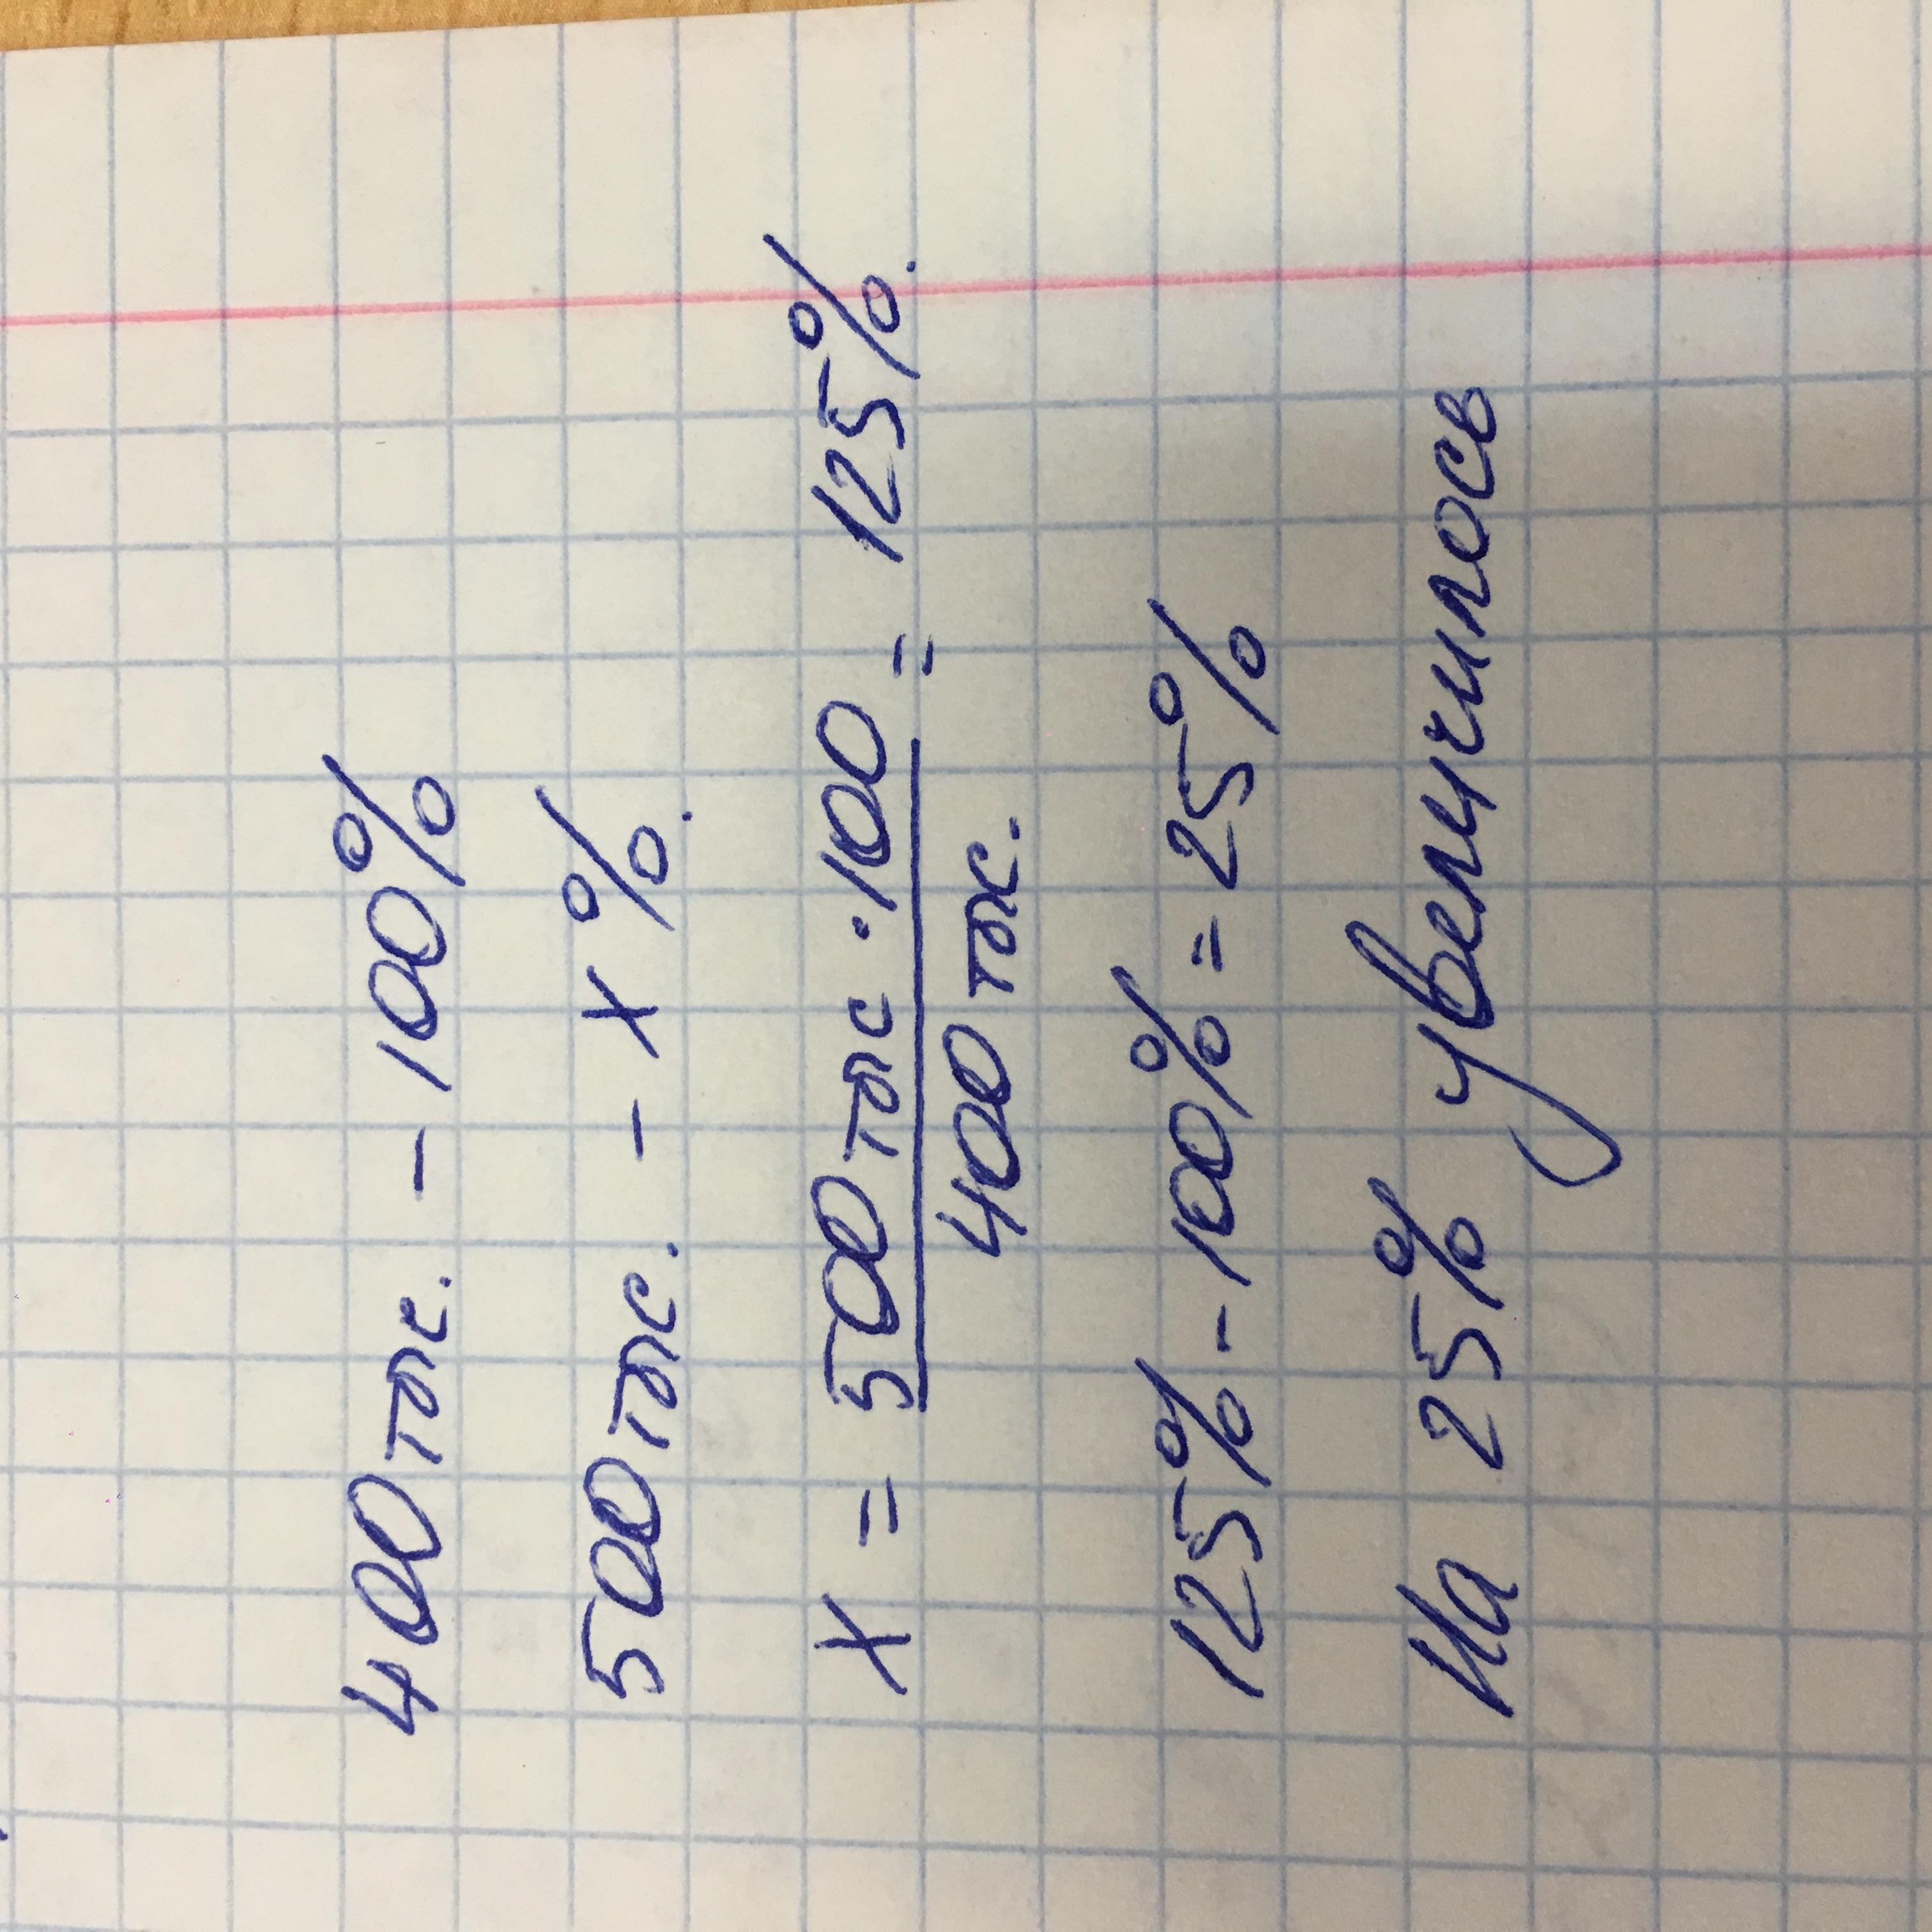 400 тыс. - 100%
500 тыс. - х%.
х = 500 тыс · 100 = 125%.
400 тыс.
125% - 100% = 25%
На 25% увеличилось